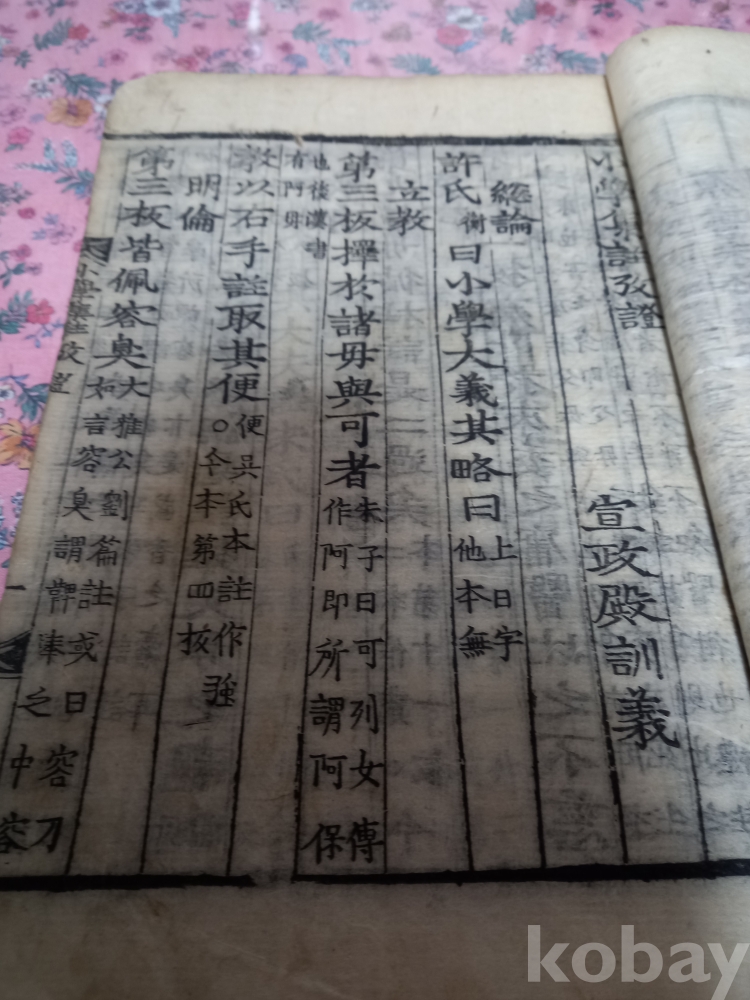 小學集註攷證
宣政殿訓義
總論
許氏衡曰小學大義其略曰上曰字他本無
立教
第三板擇於諸母與可者朱子曰可列女傳作阿即所謂阿保
也後漢書有阿母
教以右手註取其便便吳氏本註作強○今本第四板
明倫
第三板皆佩容臭大雅公劉篇註或曰容刀如言容臭謂鞞琫之中容
小學集註攷證
kobay